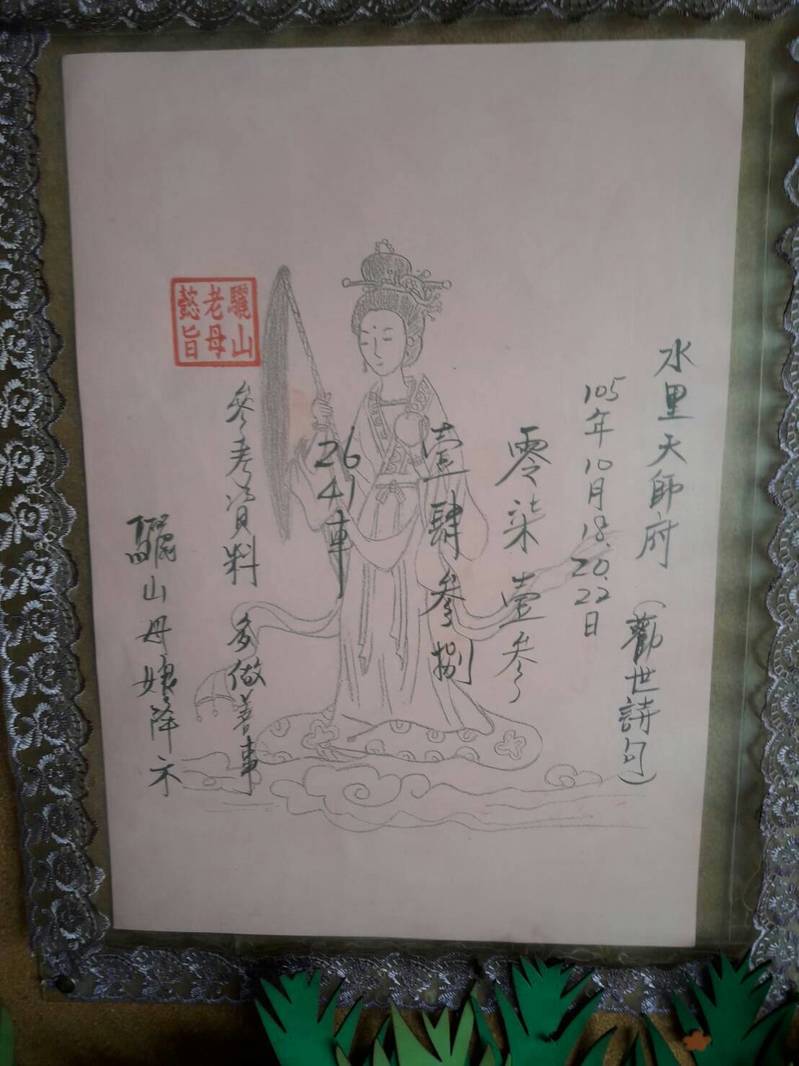 水里天師府
(勸世詩句)
105年10月18.20.22日
零柒壹叁
壹肆叁捌
26
41車
參考資料 多做善事
驪山母娘降示
驪山
老母
懿旨